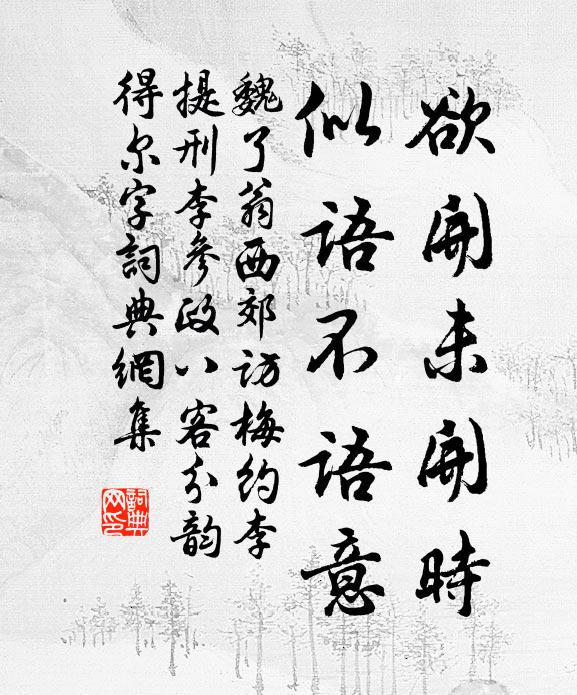 欲開未開時
似語不語意
魏了翁西郊访梅约李
提刑李参政八客分韵
得尔字詞典網集
詞典网印